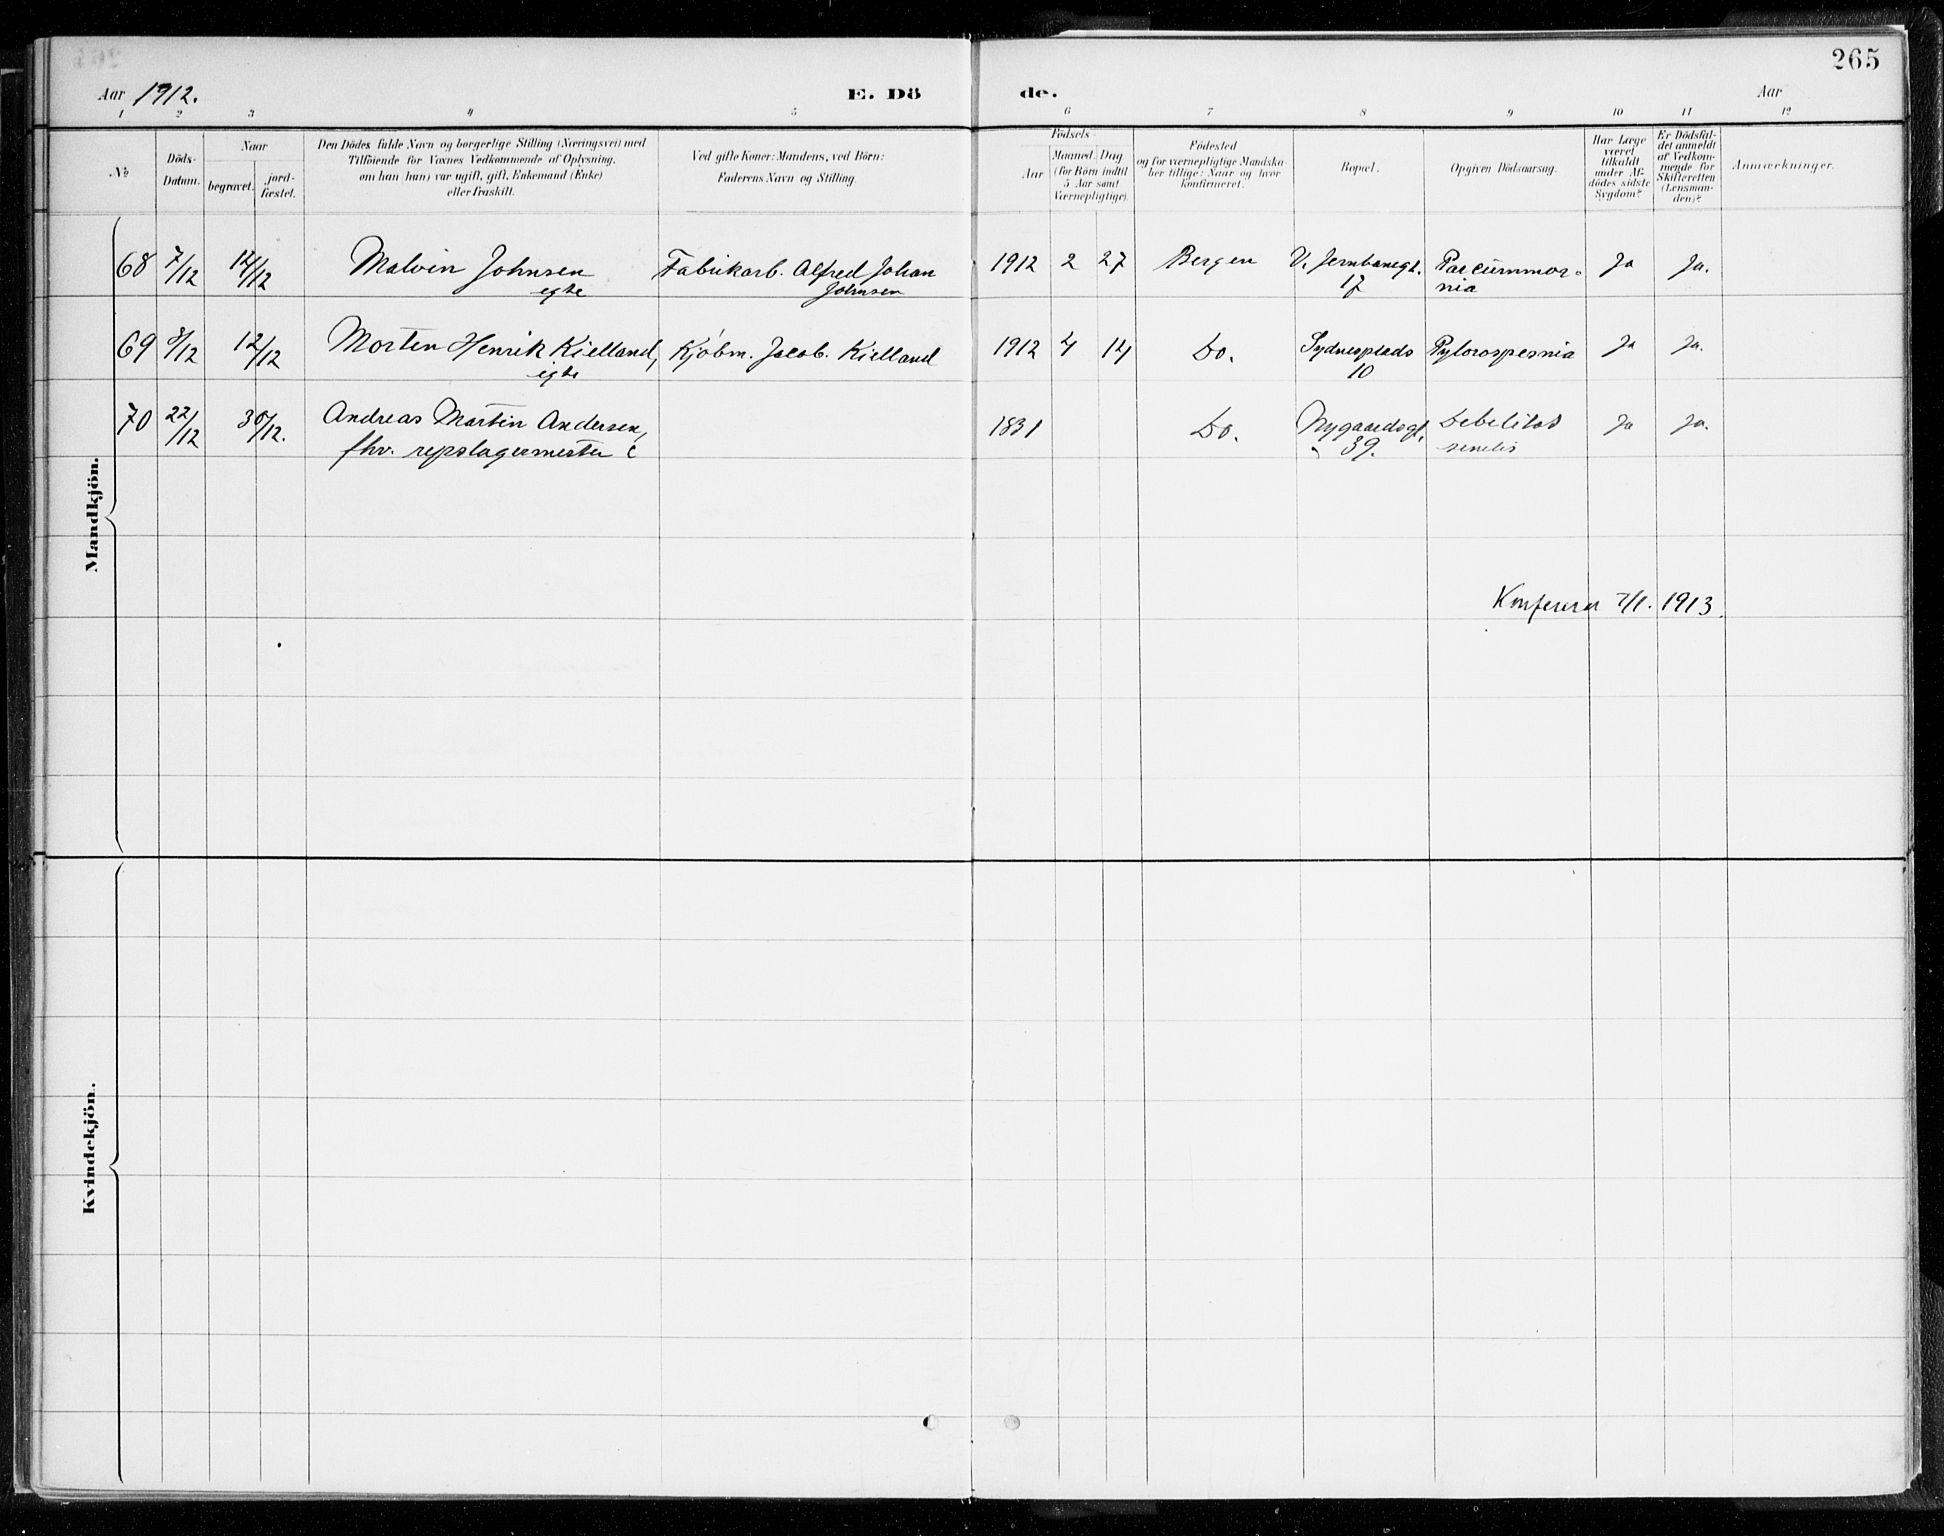 265
Aar 1912.
E. Dö
de.
Aar
1 2 3 4 5 6 7 8 9 10 11 12
№
Döds-Datum.
Naar
begravet.
jord-fæstet.
Den Dödes fulde Navn og borgerlige Stilling (Næringsvei) med
Tilföiende for Voxnes Vedkommende af Oplysning,
om han (hun) var ugift, gift, Enkemand (Enke)
eller fraskilt.
Ved gifte Koner: Mandens, ved Börn:
Faderens Navn og Stilling.
Födsels-
Aar
Maaned. Dag
(for Börn indtil
5 Aar samt
Værnepligtige).
Födested
og for værnepligtige Mandska-
ber tillige: Naar og hvor
konfirmeret.
Bopæl.
Opgiven Dödsaarsag.
Har Læge
været
tilkaldt
under Af-
dödes sidste
Sygdom?
Er Dödsfal-
det anmeldt
af Vedkom-
mende for
Skifteretten
(Lensman-
den)?
Anmærkninger.
Mandkjön.
68 7/12 14/12 Malvin Johnsen Fabrikarb. Alfred Johan 1912 2 27 Bergen V. Jernbanegt. Ja Ja.
egte Johnsen 17 nia
69 9/12 12/12 Morten Henrik Kielland, Kjøbm. Jacob. Kielland 1912 4 14 Do. Sydnesplads Ja Ja.
egte 10
70 22/12 30/12. Andreas Martin Andersen, 1831 Do. Nygaardsgt. Debilitas Ja Ja.
fhv. repslagermester 39. senilis
1913.
Kvindekjön.